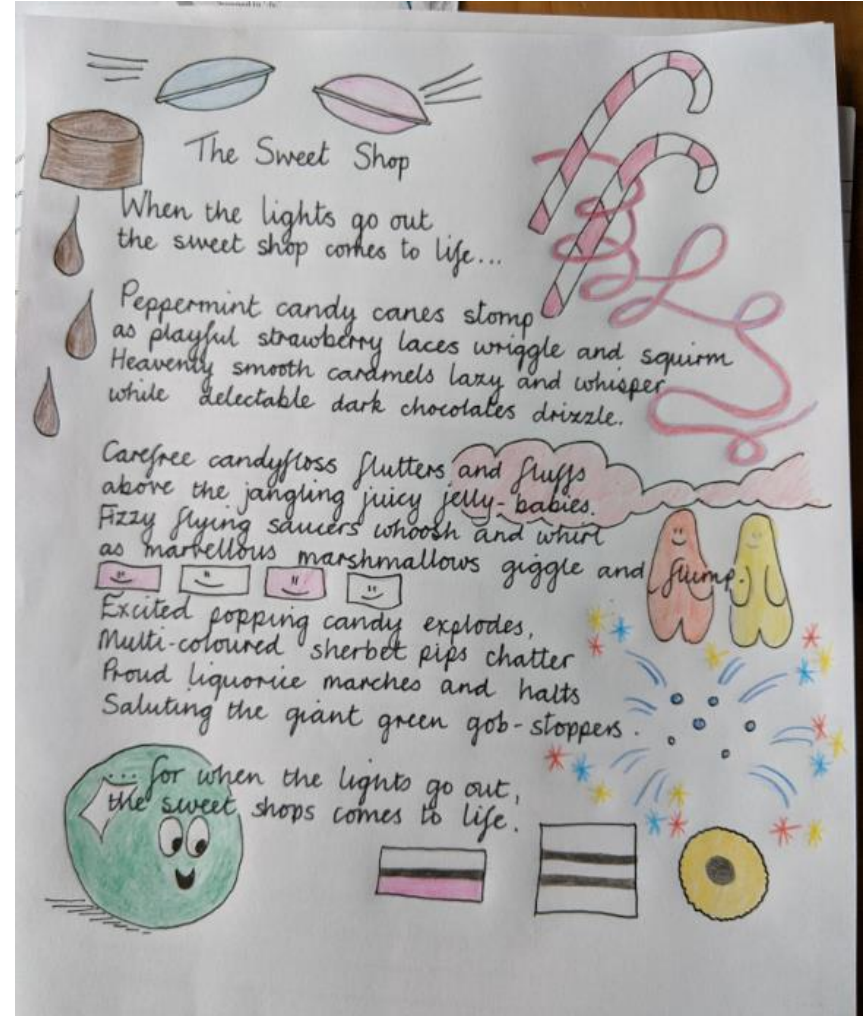 The Sweet Shop
When the lights go out
the sweet shop comes to life...
Peppermint candy canes stomp
as playful strawberry laces wriggle and squirm
Heavenly smooth caramels lazy and whisper
while delectable dark chocolates drizzle.
Carefree candyfloss flutters and fluffs
above the jangling juicy jelly-babies.
Fizzy flying saucers whoosh and whirl
as marvellous marshmallows giggle and flump.
Excited popping candy explodes,
Multi-coloured sherbet pips chatter
Proud liquorice marches and halts
Saluting the giant green gob-stoppers.
... for when the lights go out,
the sweet shops comes to life.